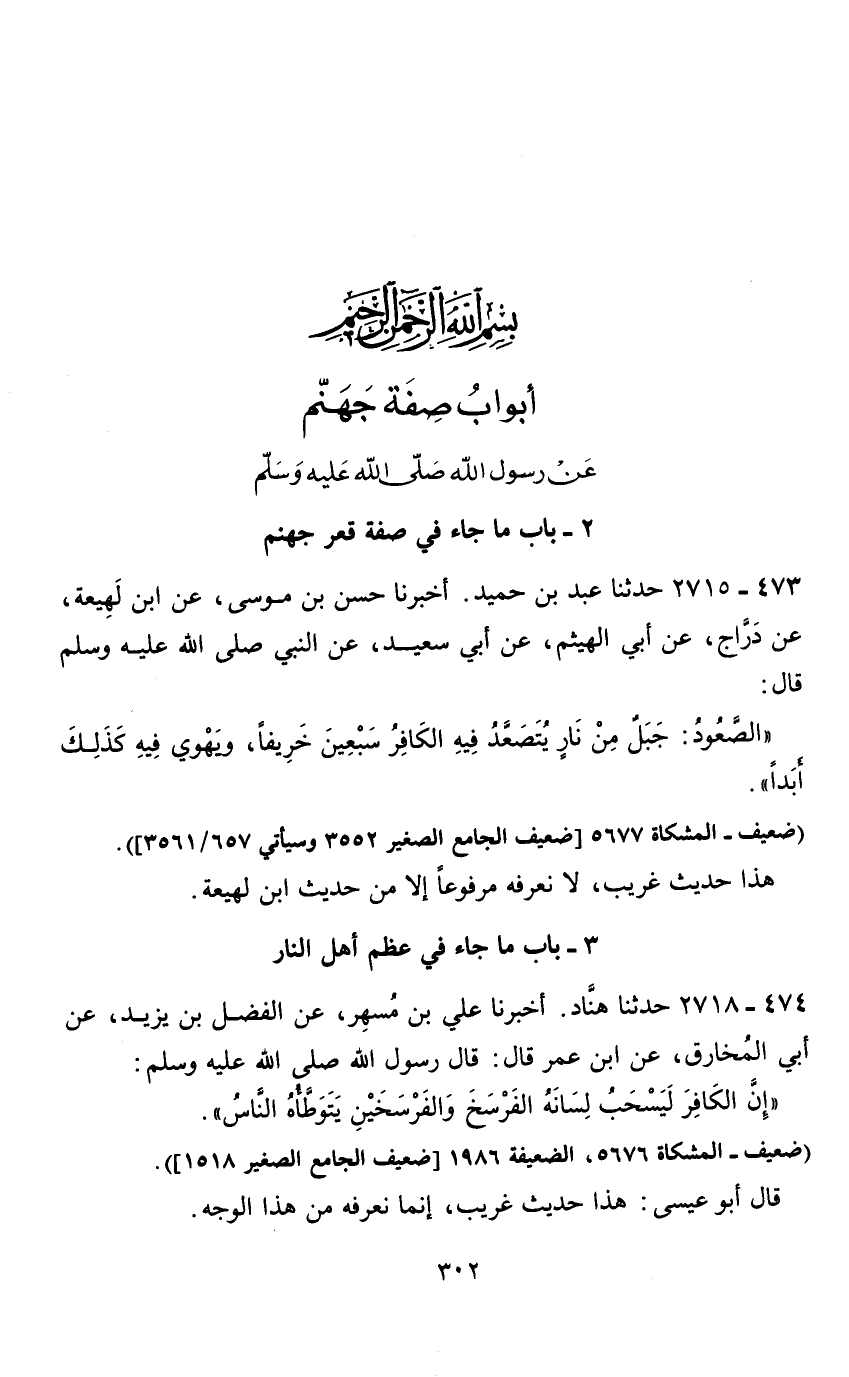 بسم الله الرحمن الرحيم
أبوابُ صِفَة جَهَنَّم
عَنْ رسول الله صَلّى الله عَليه وَسَلّم
٢ - باب ما جاء في صفة قعر جهنم
٤٧٣ - ٢٧١٥ حدثنا عبد بن حميد. أخبرنا حسن بن موسى، عن ابن لَهِيعة،
عن دَرَّاج، عن أبي الهيثم، عن أبي سعيد، عن النبي صلى الله عليه وسلم
قال:
«الصَّعُودُ: جَبَلٌ مِنْ نَارٍ يُتَصَعَّدُ فِيهِ الكَافِرُ سَبْعِينَ خَرِيفاً، ويَهْوِي فِيهِ كَذَلِكَ
أَبَداً».
(ضعيف - المشكاة ٥٦٧٧ [ضعيف الجامع الصغير ٣٥٥٢ وسيأتي ٣٥٦١/٦٥٧]).
هذا حديث غريب، لا نعرفه مرفوعاً إلا من حديث ابن لهيعة.
٣ - باب ما جاء في عظم أهل النار
٤٧٤ - ٢٧١٨ حدثنا هنَّاد. أخبرنا علي بن مُسهِر، عن الفضل بن يزيد، عن
أبي المُخارق، عن ابن عمر قال: قال رسول الله صلى الله عليه وسلم:
«إِنَّ الكَافِرَ لَيَسْحَبُ لِسَانَهُ الفَرْسَخَ وَالفَرْسَخَيْنِ يَتَوَطَّأُهُ النَّاسُ».
(ضعيف - المشكاة ٥٦٧٦، الضعيفة ١٩٨٦ [ضعيف الجامع الصغير ١٥١٨]).
قال أبو عيسى: هذا حديث غريب، إنما نعرفه من هذا الوجه.
٣٠٢